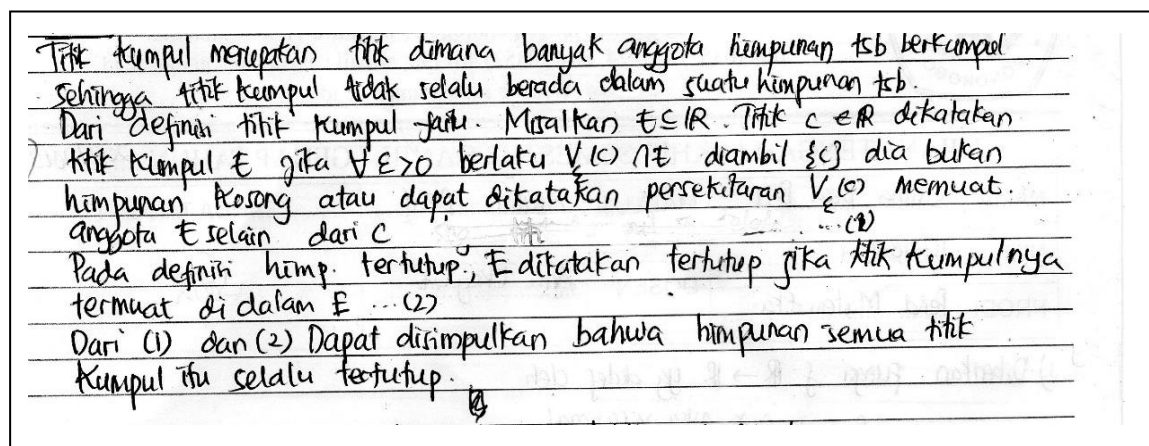 Titik kumpul merupakan titik dimana banyak anggota himpunan tsb berkumpul
sehingga titik kumpul tidak selalu berada dalam suatu himpunan tsb.
Dari definisi titik kumpul yaitu. Misalkan E ⊆ ℝ. Titik c ∈ ℝ dikatakan
titik kumpul E jika ∀ ε > 0 berlaku V_ε(c) ∩ E diambil {c} dia bukan
himpunan kosong atau dapat dikatakan persekitaran V_ε(c) memuat.
anggota E selain dari c ...(1)
Pada definisi himp. tertutup, E dikatakan tertutup jika titik kumpulnya
termuat di dalam E ...(2)
Dari (1) dan (2) Dapat disimpulkan bahwa himpunan semua titik
kumpul itu selalu tertutup.